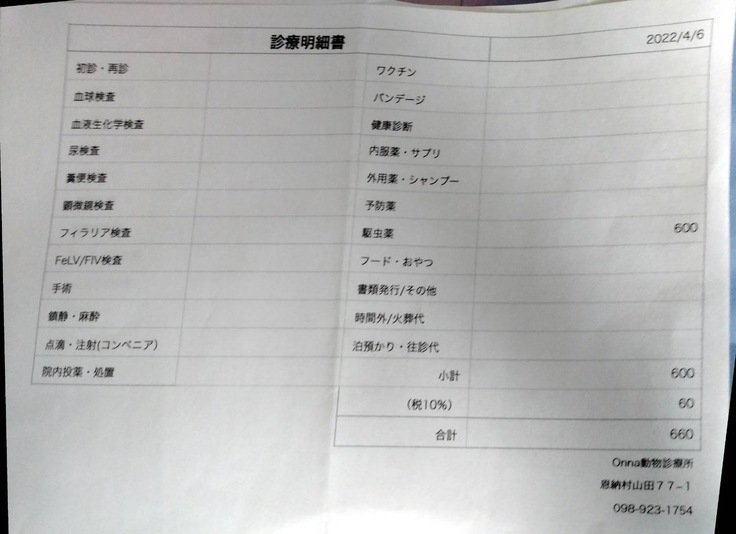 診療明細書 2022/4/6
初診・再診 ワクチン
血球検査 バンデージ
血液生化学検査 健康診断
尿検査 内服薬・サプリ
糞便検査 外用薬・シャンプー
顕微鏡検査 予防薬
フィラリア検査 駆虫薬 600
FeLV/FIV検査 フード・おやつ
手術 書類発行/その他
鎮静・麻酔 時間外/火葬代
点滴・注射(コンベニア) 泊預かり・往診代
院内投薬・処置 小計 600
(税10%) 60
合計 660
Onna動物診療所
恩納村山田77-1
098-923-1754